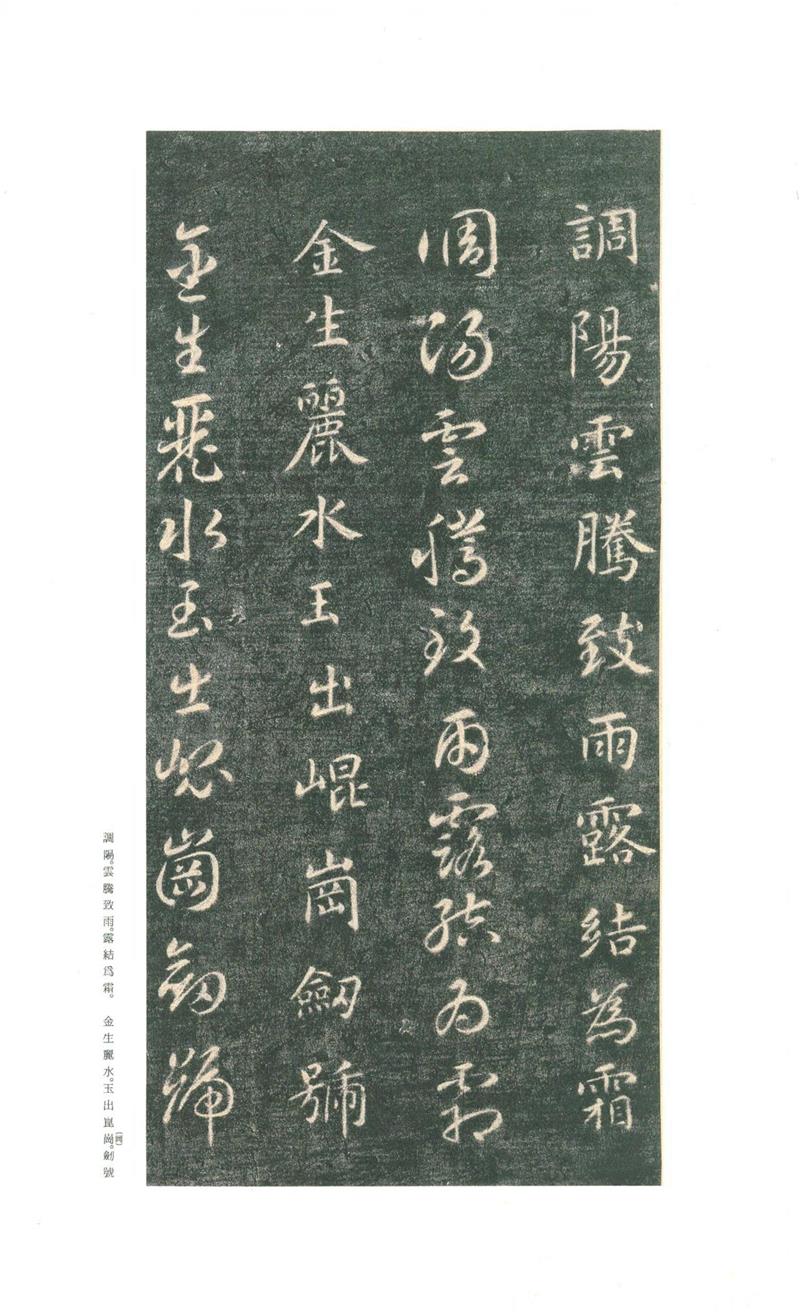 調陽雲騰致雨露結為霜
調陽雲騰致雨露結為霜
金生麗水玉出崐崗劒號
金生麗水玉出崐崗劒號
調陽。雲騰致雨。露結爲霜。　金生麗水。玉出崑崗。(岡)劍號